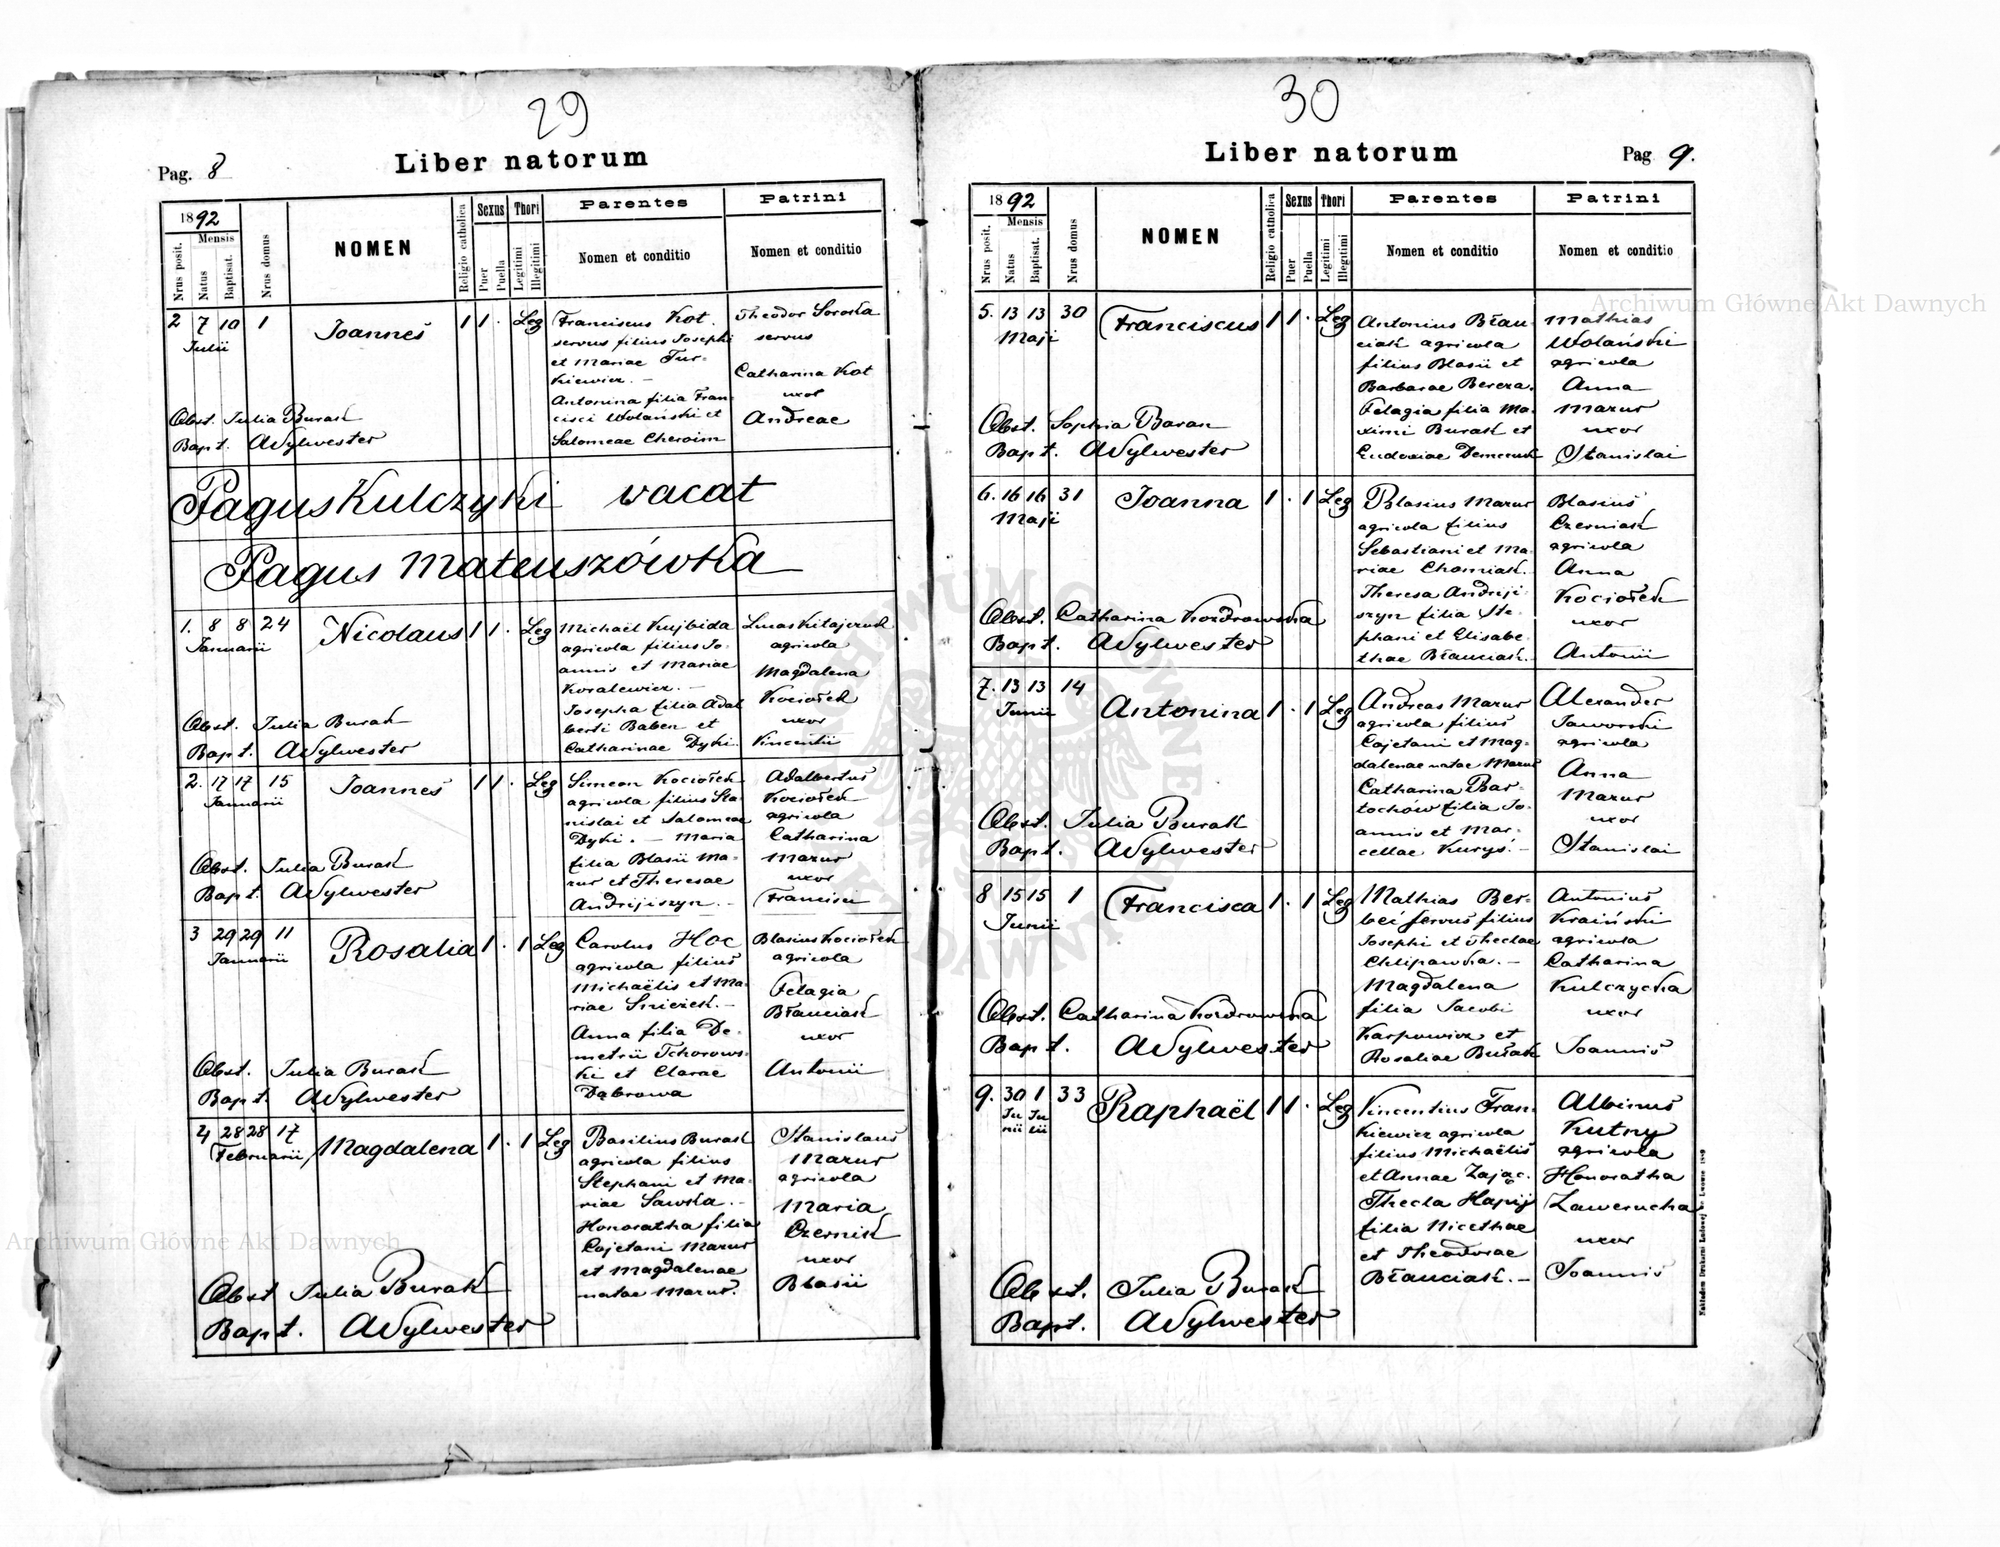 29
Pag. 8
Liber natorum
1892
Mensis
Nrus posit.
Natus
Baptisat.
Nrus domus
NOMEN
Religio catholica
Sexus
Puer
Puella
Thori
Legitimi
Illegitimi
Parentes
Nomen et conditio
Patrini
Nomen et conditio
2 7 10 1 Joannes 1 1 · Leg
Julii
Franciscus Kot
servus filius Josephi
et Mariae Tur-
kiewicz. —
Antonina filia Fran-
cisci Wolański et
Salomeae Cheroim
Theodor Soroka
servus
Catharina Kot
uxor
Andreae
Obst. Julia Burak
Bapt. A Sylwester
Pagus Kulczyki vacat
Pagus Mateuszówka
1. 8 8 24 Nicolaus 1 1 · Leg
Januarii
Michaël Kujbida
agricola filius Jo-
annis et Mariae
Kovalewicz. —
Josepha filia Adal
berti Baben et
Catharinae Dyki
Lucas Kitajczuk
agricola
Magdalena
Kociołek
uxor
Vincentii
Obst. Julia Burak
Bapt. A Sylwester
2. 17 17 15 Joannes 1 1 · Leg
Januarii
Simeon Kociołek
agricola filius Sta-
nislai et Salomeae
Dyki. — Maria
filia Blasii Ma-
zur et Theresae
Andrijiszyn. —
Adalbertus
Kociołek
agricola
Catharina
Mazur
uxor
Francisci
Obst. Julia Burak
Bapt. A Sylwester
3 29 29 11 Rosalia 1 · 1 Leg
Januarii
Carolus Hoc
agricola filius
Michaëlis et Ma-
riae Snieżek. —
Anna filia De-
metrii Tchorows-
ki et Clarae
Dąbrowa
Blasius Kociołek
agricola
Pelagia
Błauciak
uxor
Antonii
Obst. Julia Burak
Bapt. A Sylwester
4 28 28 17 Magdalena 1 · 1 Leg
Februarii
Basilius Burak
agricola filius
Stephani et Ma-
riae Sawka. —
Honoratha filia
Cajetani Mazur
et Magdalenae
natae Mazur.
Stanislaus
Mazur
agricola
Maria
Czernik
uxor
Blasii
Obst Julia Burak
Bapt. A Sylwester
30
Liber natorum
Pag 9.
1892
Mensis
Nrus posit.
Natus
Baptisat.
Nrus domus
NOMEN
Religio catholica
Sexus
Puer
Puella
Thori
Legitimi
Illegitimi
Parentes
Nomen et conditio
Patrini
Nomen et conditio
5. 13 13 30 Franciscus 1 1 · Leg
Maji
Antonius Błau-
ciak agricola
filius Blasii et
Barbarae Bereza.
Pelagia filia Ma-
ximi Burak et
Eudoxiae Demczuk
Mathias
Wolański
agricola
Anna
Mazur
uxor
Stanislai
Obst. Sophia Baran
Bapt. A Sylwester
6. 16 16 31 Joanna 1 · 1 Leg
Maji
Blasius Mazur
agricola filius
Sebastiani et Ma-
riae Chomiak. —
Theresa Andrij-
szyn filia Ste-
phani et Elisabe-
thae Błauciak. —
Blasius
Czerniak
agricola
Anna
Kociołek
uxor
Antonii
Obst. Catharina Kozdrowska
Bapt. A Sylwester
7. 13 13 14 Antonina 1 · 1 Leg
Junii
Andreas Mazur
agricola filius
Cajetani et Mag-
dalenae natae Mazur
Catharina Bar-
tochów filia Jo-
annis et Mar-
cellae Kuryś. —
Alexander
Jaworski
agricola
Anna
Mazur
uxor
Stanislai
Obst. Julia Burak
Bapt. A Sylwester
8 15 15 1 Francisca 1 · 1 Leg
Junii
Mathias Ber-
beć servus filius
Josephi et Theclae
Chlipawka. —
Magdalena
filia Jacobi
Karpowicz et
Rosaliae Burak
Antonius
Kraiński
agricola
Catharina
Kulczycka
uxor
Joannis
Obst. Catharina Kozdrowska
Bapt. A Sylwester
9. 30 1 33 Raphaël 1 1 · Leg
Ju Ju
nii lii
Vincentius Fran-
kiewicz agricola
filius Michaëlis
et Annae Zając.
Thecla Hapij
filia Nicethae
et Theodorae
Błauciak. —
Albinus
Kutny
agricola
Honoratha
Lawerucha
uxor
Joannis
Obst. Julia Burak
Bapt. A Sylwester
Nakładem Drukarni Ludowej we Lwowie 1889
Archiwum Główne Akt Dawnych
Archiwum Główne Akt Dawnych
ARCHIWUM GŁÓWNE
AKT DAWNYCH